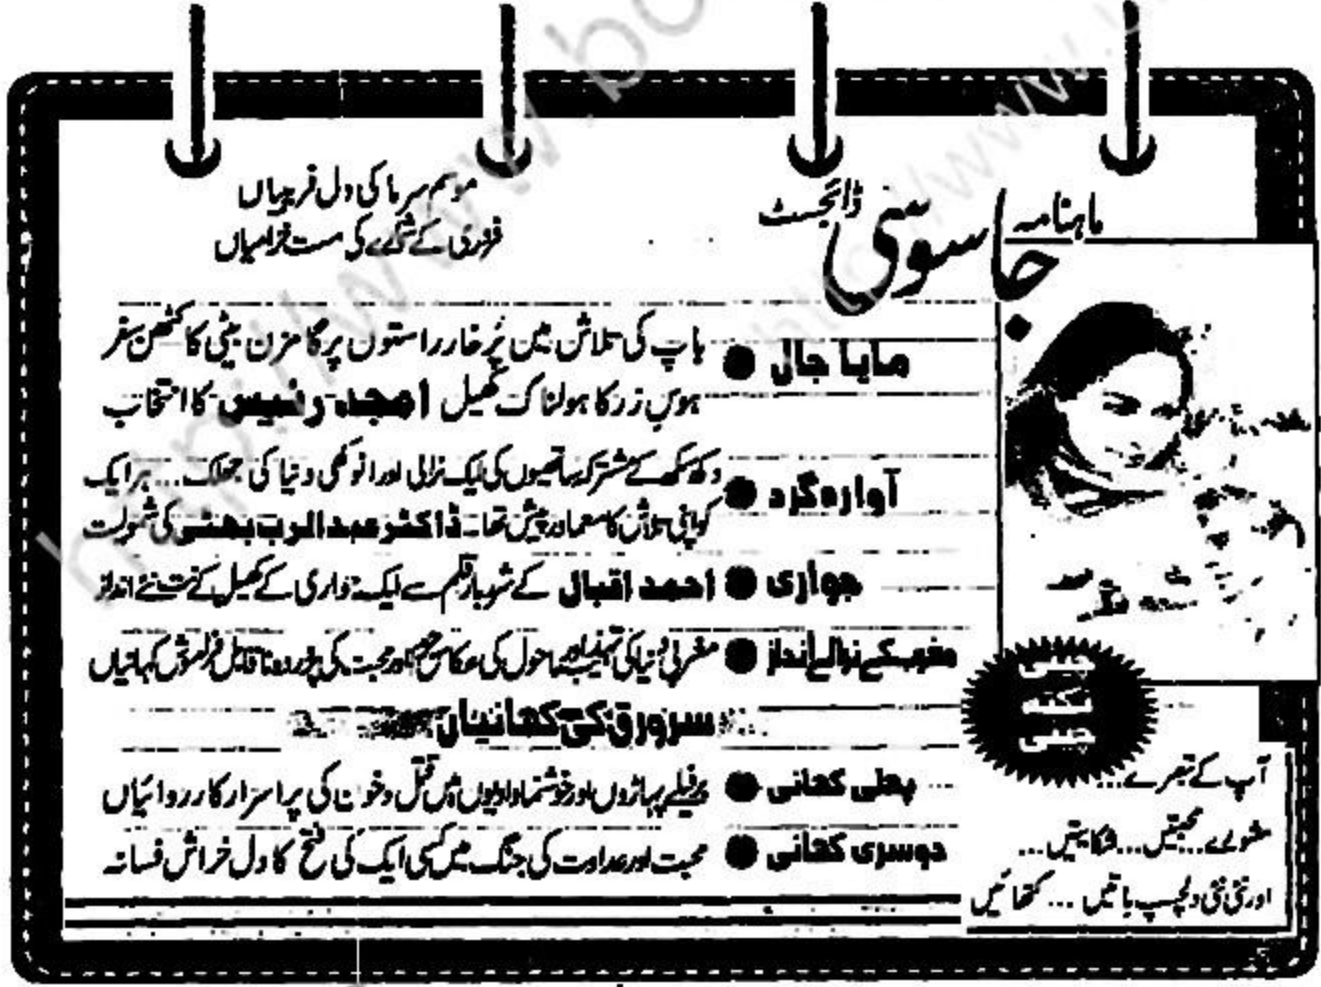 ماہنامہ
جاسوسی ڈائجسٹ
موسم سرما کی دل فریبیاں
فروری کے شمارے کی مست خرامیاں
مایا جال ● باپ کی تلاش میں پُرخار راستوں پر گامزن بیٹی کا کٹھن سفر
ہوسِ زر کا ہولناک کھیل امجد رئیس کا انتخاب
آوارہ گرد ● دکھ سکھ کے مشترکہ ساتھیوں کی ایک نرالی اور انوکھی دنیا کی جھلک... ہر ایک
کو اپنی تلاش کا معما درپیش تھا۔ ڈاکٹر عبدالرب بھٹی کی شمولیت
جواری ● احمد اقبال کے شہ پار قلم سے ایک جواری کے کھیل کے نت نئے انداز
مغرب کے نرالے انداز ● مغربی دنیا کی تہذیب اور ماحول کی عکاسی محبت کی ناقابل فراموش کہانیاں
سرورق کی کہانیاں
پہلی کہانی ● برفیلے پہاڑوں اور خوشنما وادیوں میں قتل و خون کی پراسرار کارروائیاں
دوسری کہانی ● محبت اور عداوت کی جنگ میں کسی ایک کی فتح کا دل خراش فسانہ
چینی
نکتہ
چینی
آپ کے تبصرے...
مشورے... محبتیں... شکایتیں...
اور نئی نئی دلچسپ باتیں ... کتھائیں